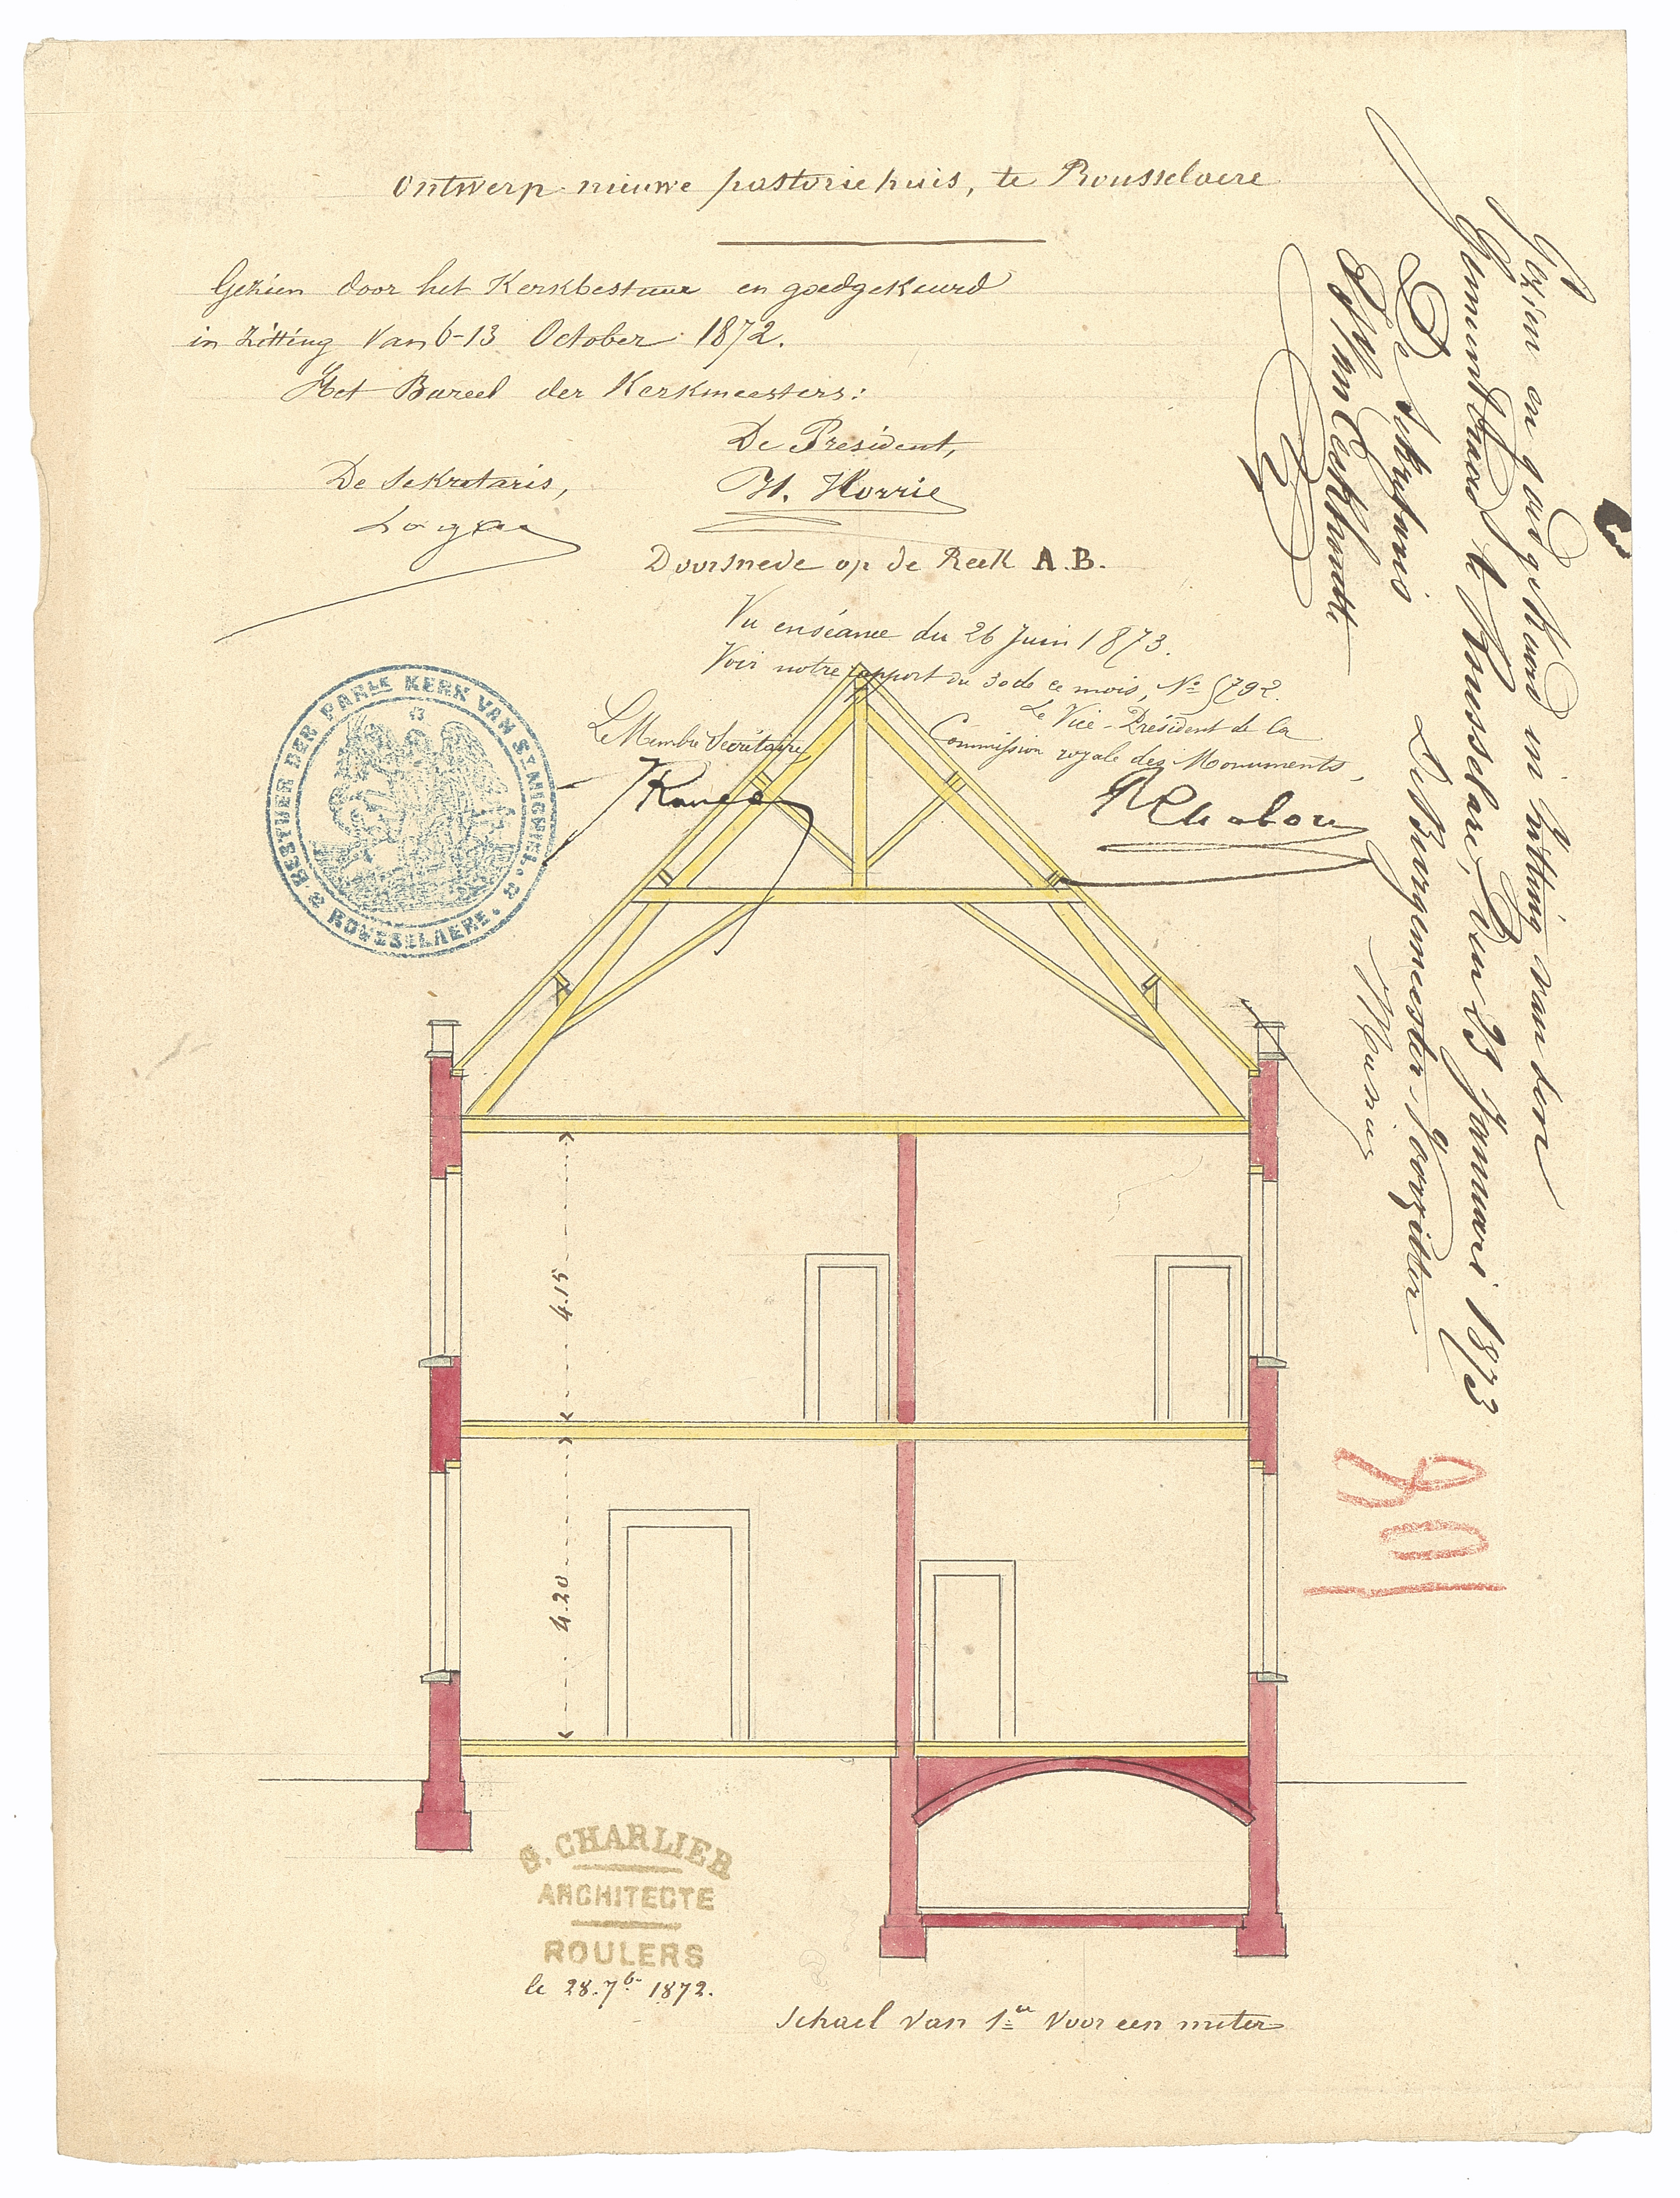 Ontwerp nieuwe pastoriehuis, te Rousselaere
Gezien door het Kerkbestuur en goedgekeurd
in zitting van 6-13 October 1872.
Het Bureel der Kerkmeesters:
De President,
De Sekretaris,
H. Horrie
Doorsnede op de Reek A.B.
Vu en séance du 26 Juin 1873.
Voir notre rapport du 30 de ce mois, No 5792.
Le Vice-Président de la
Commission royale des Monuments,
Le Membre Secrétaire
BESTUER DER PARLE KERK VAN ST MICHIEL.
ROUSSELAERE.
Gezien en goedgekeurd in zitting van den
Gemeenteraad te Rousselare, den 23 Januari 1873
De Sekretaris
De Burgemeester-Voorzitter
108
4.15
4.20
S. CHARLIER
ARCHITECTE
ROULERS
le 28. 7b. 1872.
Schael van 1ce voor een meter